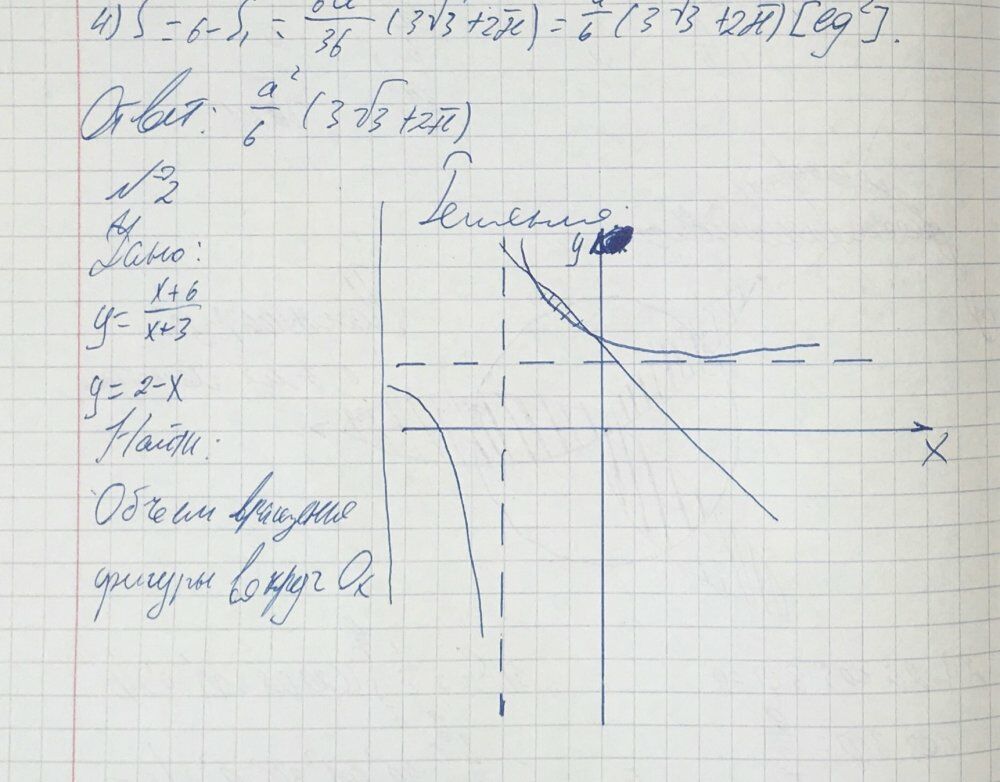 4) S = 6 - S₁ = 6a/36 (3√3 + 2π) = a/6 (3√3 + 2π) [ед²].
Ответ: a²/6 (3√3 + 2π)
№2
Дано:
y = (x+6)/(x+3)
y = 2-x
Найти:
Объем вращения
фигуры вокруг Ox
Решение:
y
x